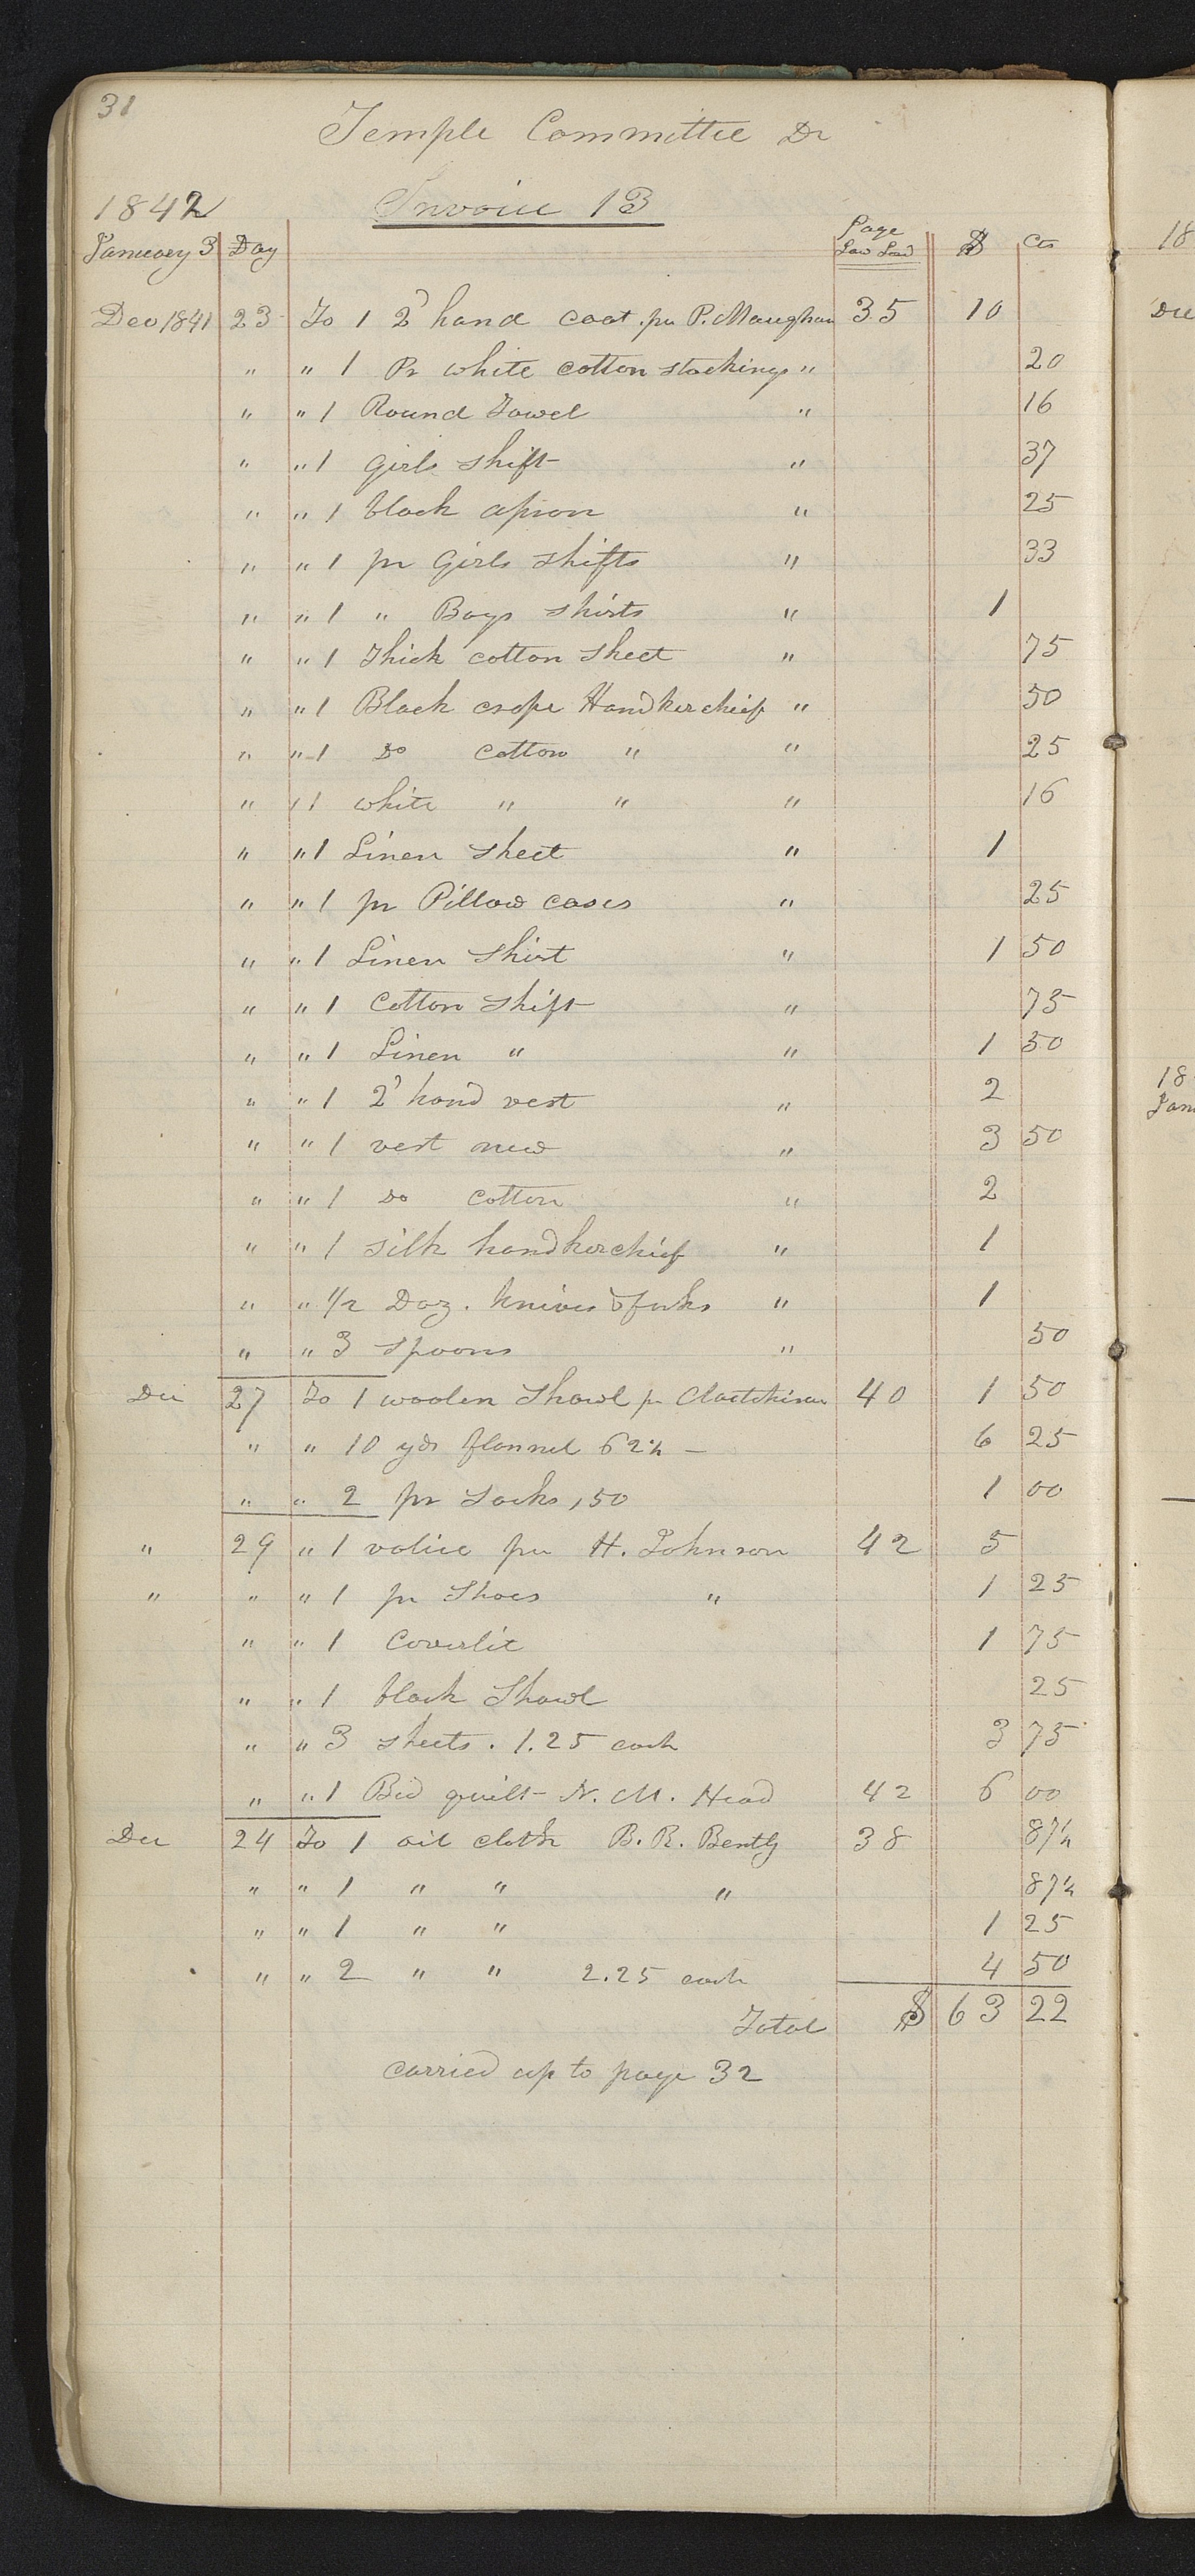 31
Temple Committee Dr
1842 Invoice 13
January 3 Day Page $ cts
Dec 1841 23 To 1 2d hand coat . pr P. Maughan 35 10
" " 1 Pr white cotton stockings " 20
" " 1 Round Towel " 16
" " 1 Girls Shift " 37
" " 1 black apron " 25
" " 1 pr Girls Shifts " 33
" " 1 " Boys Shirts " 1
" " 1 Thick cotton Sheet " 75
" " 1 Black crape Handkerchief " 50
" " 1 Do cotton " " 25
" " 1 white " " " 16
" " 1 Linen Sheet " 1
" " 1 pr Pillow cases " 25
" " 1 Linen Shirt " 1 50
" " 1 Cotton Shift " 75
" " 1 Linen " " 1 50
" " 1 2d hand vest " 2
" " 1 vest new " 3 50
" " 1 Do cotton " 2
" " 1 silk handkerchief " 1
" " 1/2 Doz. knives & forks " 1
" " 3 spoons " 50
Dec 27 To 1 woolen Shawl pr 40 1 50
" " 10 yds flannel 62½ — 6 25
" " 2 pr Socks , 50 1 00
" 29 " 1 valice per H. Johnson 42 5
" " " 1 pr Shoes " 1 25
" " 1 Coverlit 1 75
" " 1 black Shawl 25
" " 3 sheets . 1.25 each 3 75
" " 1 Bed quilt - N. M. Head 42 6 00
Dec 24 To 1 oil cloth B. R. Bently 38 87½
" " 1 " " " 87½
" " 1 " " 1 25
" " 2 " " 2.25 each 4 50
Total $ 63 22
carried up to page 32
18
Dec
18
Jan